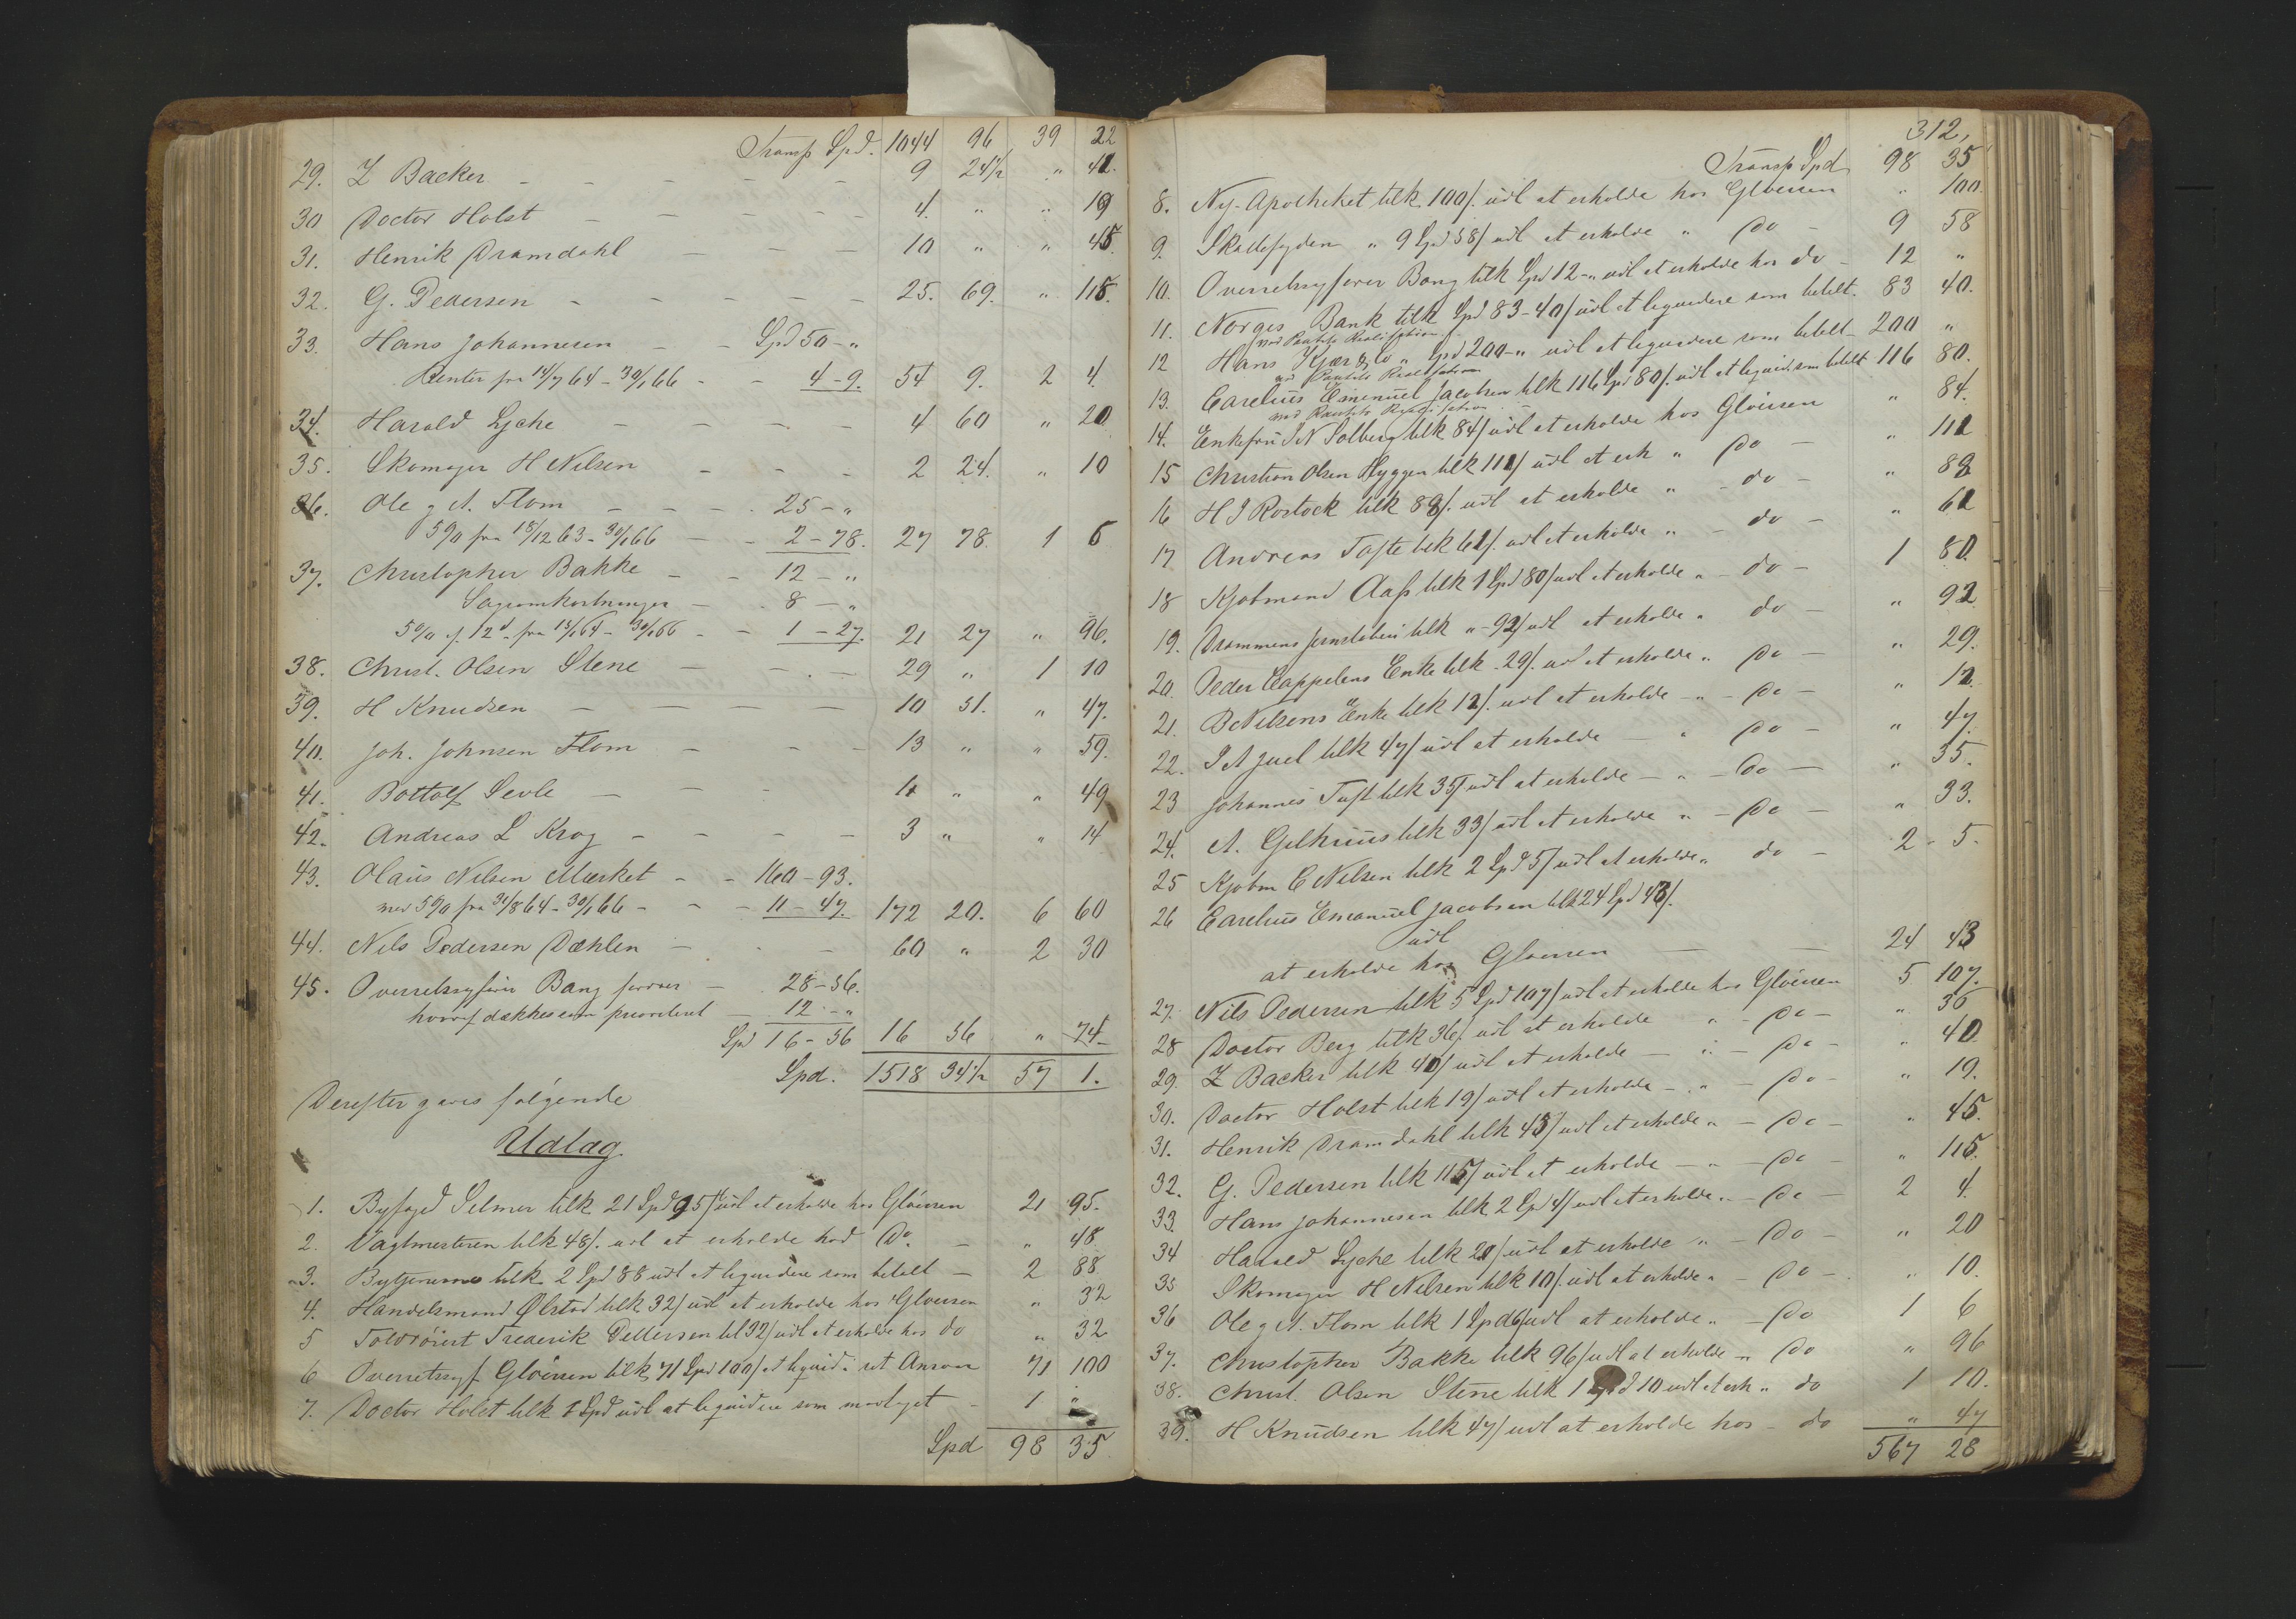 Transp Spd. 1044 96 39 22
29. Z Backer - - - - - 9 24½ " 41.
30 Doctor Holst - - - - - 4. " " 19
31. Henrik Dramdahl - - - 10 " " 45.
32. G. Pedersen - - - - - 25. 69. " 115.
33. Hans Johannesen - - Spd 50 - "
Renter fra 14/7 64 - 30/1 66 - - 4 - 9. 54 9. 2 4.
34. Harald Lyche - - - - 4 60 " 20
35. Skomager H Nilsen - - - 2 24. " 10
36. Ole g A. Flom - - - 25 - "
5% fra 18/12 63 - 30/1 66 - - 2 - 78. 27 78. 1 6
37. Christopher Bakke - - 12 - "
Sagsomkostninger - 8 - "
5% af 12 d. fra 13/1 64 - 30/1 66 - - 1 - 27. 21 27 " 96.
38. Christ. Olsen Stene - - - 29 " 1 10
39. H Knudsen - - - - 10 51. " 47.
40. Joh. Johnsen Flom - - - 13 " " 59.
41. Bottolf Sevle - - - 11 " " 49
42. Andreas L Krog - - - - 3 " " 14
43. Olaüs Nilsen Mærket - - 160 - 93.
med 5% fra 31/8 64 - 30/1 66 - - - 11 - 47. 172 20. 6 60
44. Nils Pedersen Dæhlen - - - 60 " 2 30
45. Overretssagfører Bang fordrer - 28 - 56.
hvoraf dækkes som prioriteret - 12 - "
Spd 16 - 56 16 56 " 74.
Spd. 1518 34½ 57 1.
Derefter gaves følgende
Udlæg.
1. Byfoged Selmer tilk. 21 Spd 95/ udl at erholde hos Gløersen 21 95.
2. Vagtmesteren tilk 48/. udl at erholde hos Do. - " 48
3. Bytjenerne tilk. 2 Spd 88 udl at liqvidere som betalt - 2 88
4. Handelsmand Ølstad tilk 32/ udl at erholde hos Gløersen " 32
5 Frederik Pettersen til 32/ udl at erholde hos do " 32
6 Overretssagf Gløersen tilk 71 Spd 100/ at liqvid. i sit Ansvar 71 100
7. Doctor Holst tilk 1 Spd udl at liqvidere som modtaget - 1 "
Spd 98 35
312,
Transp Spd 98 35
8. Ny-Apotheket tilk. 100/. udl at erholde hos Gløersen " 100.
9. Skattefogden " 9 Spd 58/ udl at erholde " Do - 9 58
10. Overretssagfører Bang tilk Spd 12-" udl at erholde hos do - 12 "
11. Norges Bank tilk Spd 83-40/ udl at liqvidere som betalt. 83 40.
ved Pantets Realisation
12 Hans Kjær & Co " Spd 200-" udl at liqvidere som betalt - 200 "
ved Pantets Realisation
13. Carelius Emanuel Jacobsen tilk 116 Spd 80/. udl at liqvid. som betalt 116 80.
ved Pantets Realisation
14. Enkefrü S N Solberg tilk 84/ udl at erholde hos Gløersen " 84.
15 Christian Olsen Hyggen tilk 111/ udl at erh " Do - " 111
16 H J Rostock tilk 89/. udl at erholde " - do - " 89
17 Andreas Tofte tilk 61/. udl at erholde " - do - " 61
18 Kjøbmand Aass tilk 1 Spd 80/ udl at erholde " - do - 1 80.
19. Drammens Jernstøberi tilk " - 92/ udl at erholde " do - " 92
20. Peder Cappelens Enke tilk - 29/. udl at erholde " Do - " 29.
21. B Nilsens Enke tilk 12/. udl at erholde - " - Do - " 12.
22. J A Juel tilk 47/ udl at erholde - " Do - " 47.
23 Johannes Tuft tilk 35/ udl at erholde - " - Do - " 35.
24. A. Gilhuus tilk 33/ udl at erholde " - Do - " 33.
25 Kjøbm C Nilsen tilk 2 Spd 5/ udl at erholde " do - 2 - 5.
26 Carelius Emanuel Jacobsen tilk 24 Spd 43/.
udl
at erholde hos Gløersen - - 24 43
27. Nils Pedersen tilk 5 Spd 107/ udl at erholde hos Gløersen 5 107.
28 Doctor Berg tilk 36/. udl at erholde " - Do - " 36
29. Z Backer tilk 40/ udl at erholde - " - Do - " 40
30. Doctor Holst tilk 19/ udl at erholde - " - Do - " 19.
31. Henrik Dramdahl tilk 45/ udl at erholde " - Do - " 45.
32. G. Pedersen tilk 115/ udl at erholde - " - Do " 115.
33. Hans Johannesen tilk 2 Spd 4/ udl at erholde " - Do - 2 4.
34 Harald Lyche tilk 20/ udl at erholde " - Do - " 20
35 Skomager H Nilsen tilk 10/. udl at erholde " - Do - " 10.
36 Ole g A. Flom tilk 1 Spd 6/ udl at erholde " - Do 1 6
37. Christopher Bakke tilk 96/ udl at erholde - " Do " 96
38. Christ. Olsen Stene tilk 1 Spd 10 udl at erh " do 1 10.
39. H Knüdsen tilk 47/ udl at erholde hos - do " 47
567 28